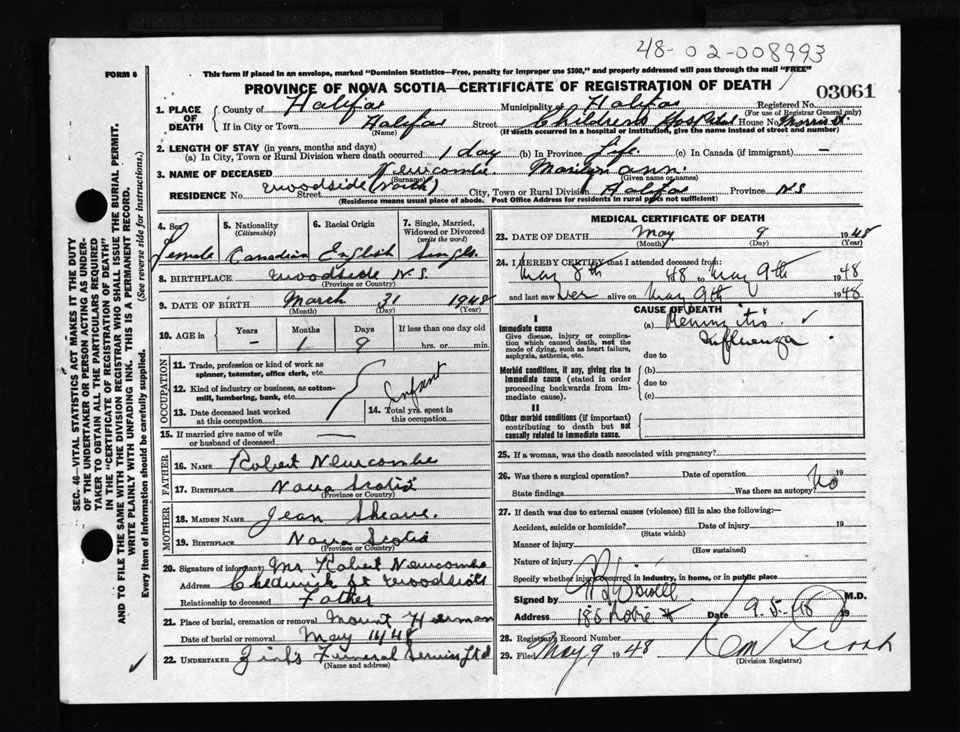 48-02-008993
FORM 6
This form if placed in an envelope, marked "Dominion Statistics—Free, penalty for improper use $300," and properly addressed will pass through the mail "FREE"
PROVINCE OF NOVA SCOTIA—CERTIFICATE OF REGISTRATION OF DEATH
03061
1. PLACE OF DEATH County of Halifax Municipality of Halifax Registered No. (For use of Registrar General only)
If in City or Town Halifax (Name) Street Children's Hospital House No. Morris St.
(If death occurred in a hospital or institution, give the name instead of street and number)
2. LENGTH OF STAY (in years, months and days)
(a) In City, Town or Rural Division where death occurred 1 day (b) In Province Life. (c) In Canada (if immigrant) —
3. NAME OF DECEASED Newcombe. (Surname) Marilyn Ann. (Given name or names)
RESIDENCE No. Street Woodside (North) City, Town or Rural Division Halifax Province N.S
(Residence means usual place of abode. Post Office Address for residents in rural parts not sufficient)
4. Sex Female
5. Nationality (Citizenship) Canadian
6. Racial Origin English
7. Single, Married, Widowed or Divorced (write the word) Single.
8. BIRTHPLACE Woodside N.S. (Province or Country)
9. DATE OF BIRTH March (Month) 31 (Day) 1948 (Year)
10. AGE Years – Months 1 Days 9 If less than one day old hrs. or min.
OCCUPATION
11. Trade, profession or kind of work as spinner, teamster, office clerk, etc.
12. Kind of industry or business, as cotton-mill, lumbering, bank, etc.
Infant
13. Date deceased last worked at this occupation
14. Total yrs. spent in this occupation
15. If married give name of wife or husband of deceased —
FATHER
16. NAME Robert Newcombe
17. BIRTHPLACE Nova Scotia (Province or Country)
MOTHER
18. MAIDEN NAME Jean
19. BIRTHPLACE Nova Scotia (Province or Country)
20. Signature of informant Mr Robert Newcombe
Address St Woodside
Relationship to deceased Father
21. Place of burial, cremation or removal Mount Herman
Date of burial or removal May 1948
22. UNDERTAKER Zink's Funeral Service Ltd (Name and address)
MEDICAL CERTIFICATE OF DEATH
23. DATE OF DEATH May (Month) 9 (Day) 1948 (Year)
24. I HEREBY CERTIFY that I attended deceased from
May 8th 48 to May 9th 1948
and last saw her alive on May 9th 1948
CAUSE OF DEATH
I
Immediate cause
Give disease, injury or complication which caused death, not the mode of dying, such as heart failure, asphyxia, asthenia, etc.
(a) Meningitis
Influenza
due to
Morbid conditions, if any, giving rise to immediate cause (stated in order proceeding backwards from immediate cause).
(b)
due to
(c)
II
Other morbid conditions (if important) contributing to death but not causally related to immediate cause.
25. If a woman, was the death associated with pregnancy?
26. Was there a surgical operation? Date of operation 19
State findings Was there an autopsy? No
27. If death was due to external causes (violence) fill in also the following:—
Accident, suicide or homicide? (State which) Date of injury 19
Manner of injury (How sustained)
Nature of injury
Specify whether injury occurred in industry, in home, or in public place
Signed by M.D.
Address 186 Robie St Date 9-5-48 19
28. Registrar's Record Number
29. Filed May 9 1948 (Division Registrar)
SEC. 46—VITAL STATISTICS ACT MAKES IT THE DUTY OF THE UNDERTAKER OR PERSON ACTING AS UNDERTAKER TO OBTAIN ALL THE PARTICULARS REQUIRED IN THE "CERTIFICATE OF REGISTRATION OF DEATH"
AND TO FILE THE SAME WITH THE DIVISION REGISTRAR WHO SHALL ISSUE THE BURIAL PERMIT.
WRITE PLAINLY WITH UNFADING INK. THIS IS A PERMANENT RECORD.
Every item of information should be carefully supplied. (See reverse side for instructions.)